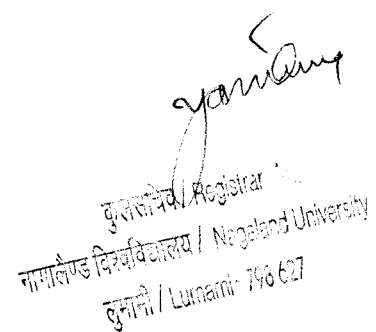 कुलसचिव / Registrar
नागालैण्ड विश्वविद्यालय / Nagaland University
लुमामी / Lumami- 796 627